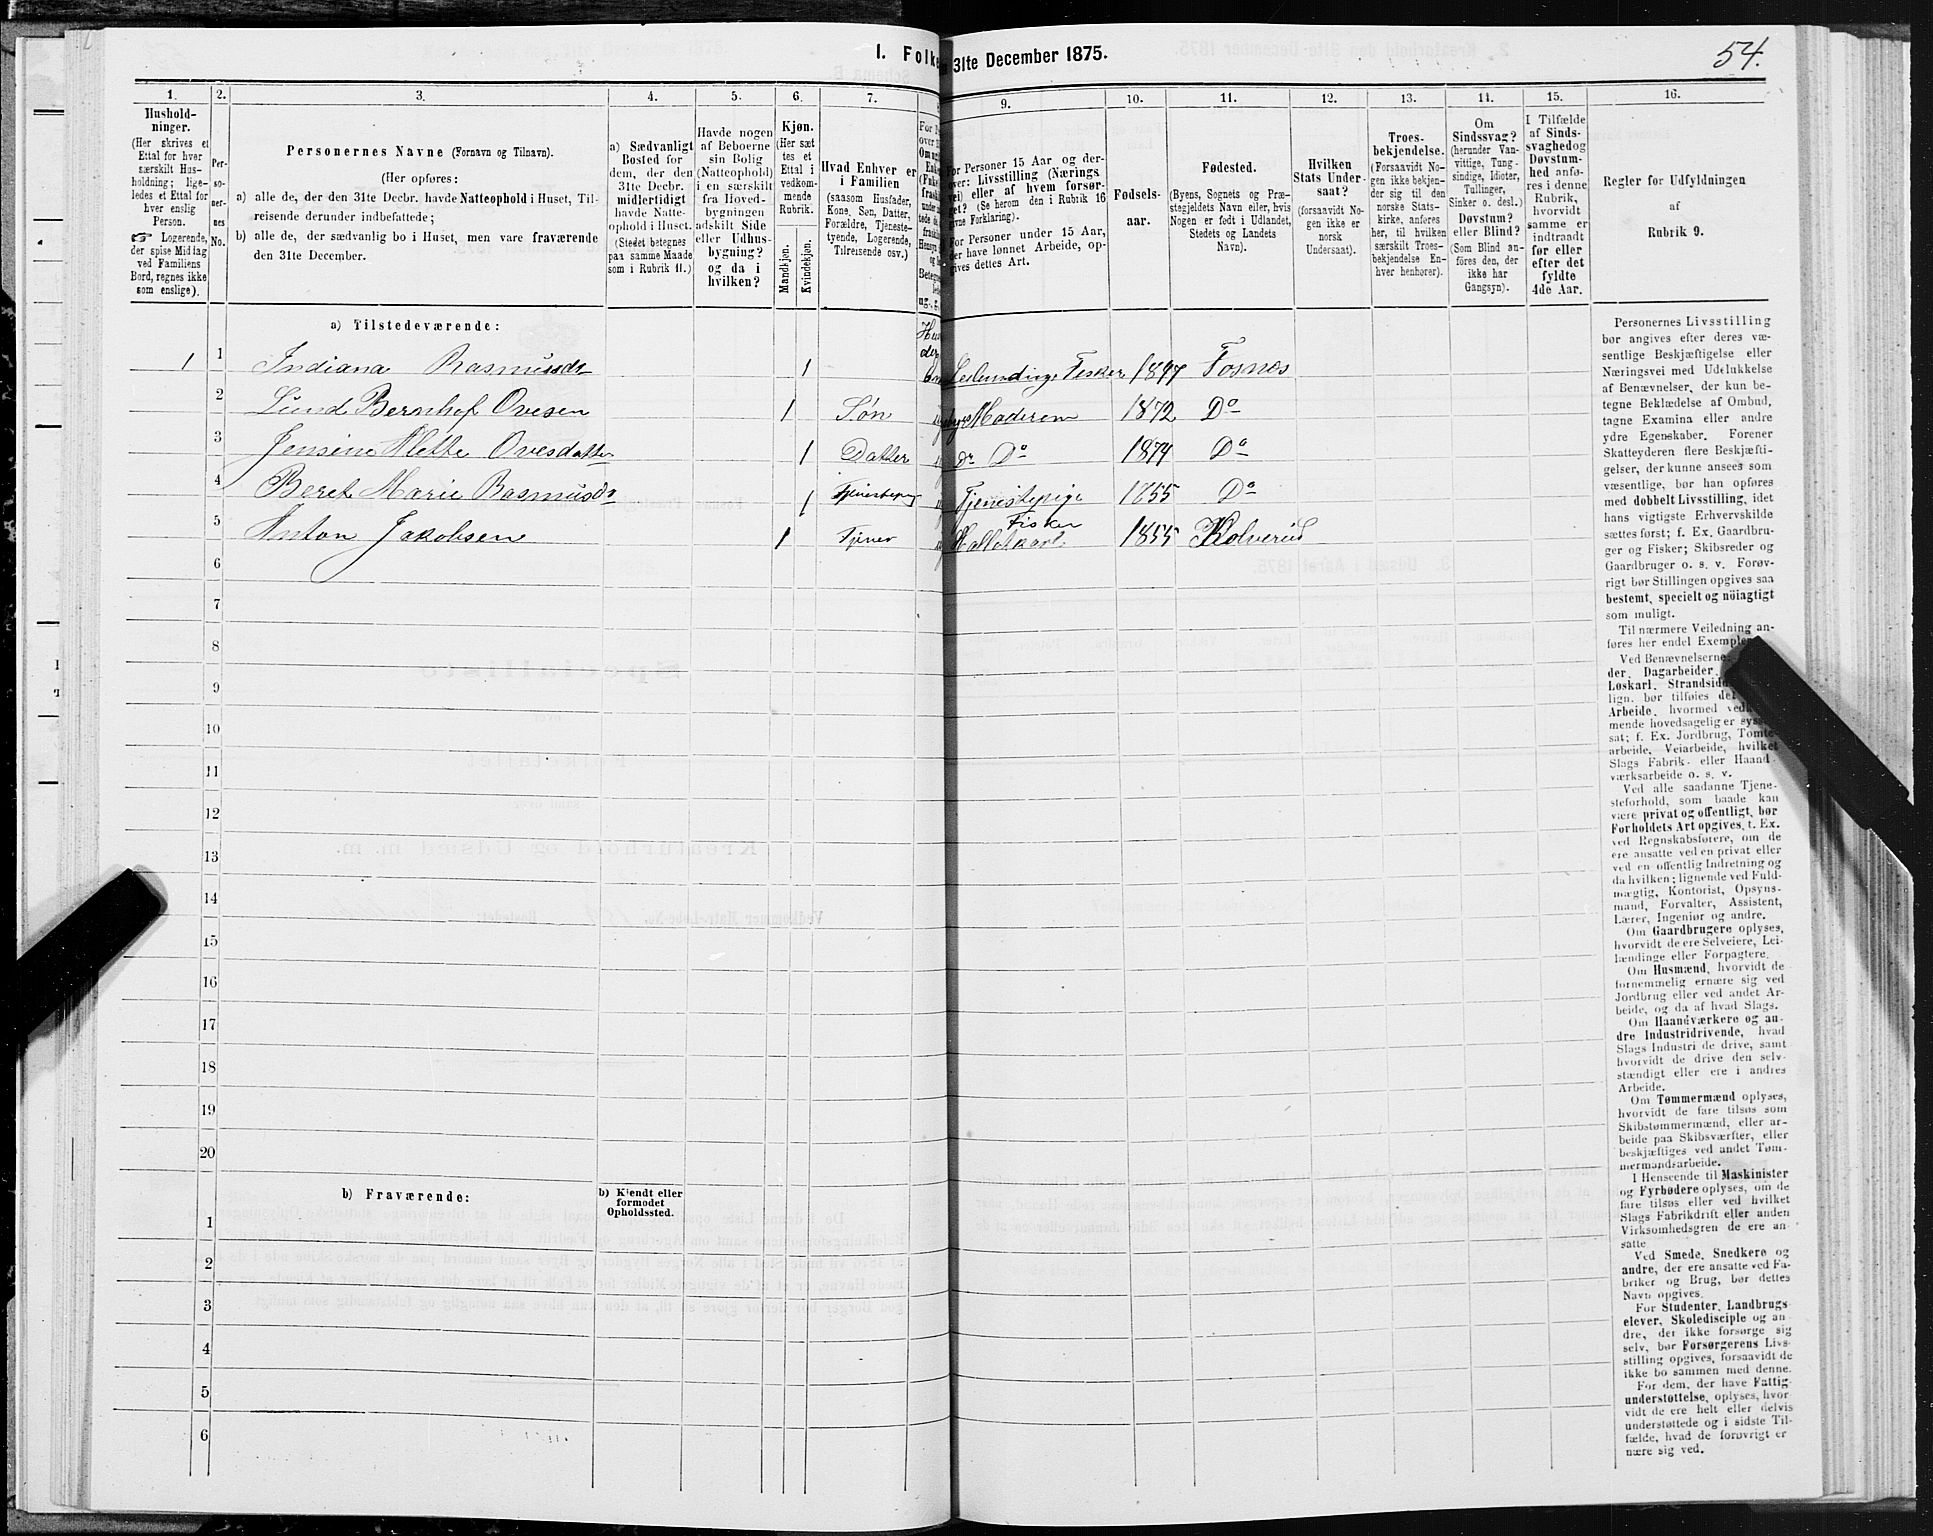 1. Folke
31te December 1875.
54.
1.
2.
3.
4.
5.
6.
7.
9.
10.
11.
12.
13.
14.
15.
16.
Hushold-
ninger.
(Her skrives et
Ettal for hver
særskilt Hus-
holdning; lige-
ledes et Ettal for
hver enslig
Person.
☞ Logerende,
der spise Middag
ved Familiens
Bord, regnes ikke
som enslige).
Per-
so-
ner-
nes
No.
Personernes Navne (Fornavn og Tilnavn).
(Her opføres:
a) alle de, der den 31te Decbr. havde Natteophold i Huset, Til-
reisende derunder indbefattede;
b) alle de, der sædvanlig bo i Huset, men vare fraværende
den 31te December.
a) Sædvanligt
Bosted for
dem, der den
31te Decbr.
midlertidigt
havde Natte-
ophold i Huset.
(Stedet betegnes
paa samme Maade
som i Rubrik 11.)
Havde nogen
af Beboerne
sin Bolig
(Natteophold)
i en særskilt
fra Hoved-
bygningen
adskilt Side
eller Udhus-
bygning?
og da i
hvilken?
Kjøn.
(Her sæt
tes et
Ettal i
vedkom-
mende
Rubrik.
Mandkjøn.
Kvindekjøn.
Hvad Enhver er
i Familien
(saasom Husfader,
Kone, Søn, Datter,
Forældre, Tjeneste-
tyende, Logerende,
Tilreisende osv.)
For Personer 15 Aar og der-
over: Livsstilling (Nærings
vei) eller af hvem forsør-
get? (Se herom den i Rubrik 16
givne Forklaring).
For Personer under 15 Aar,
der have lønnet Arbeide, op-
gives dettes Art.
Fødsels-
aar.
Fødested.
(Byens, Sognets og Præ-
stegjeldets Navn eller, hvis
Nogen er født i Udlandet,
Stedets og Landets
Navn).
Hvilken
Stats Under-
saat?
(forsaavidt No-
gen ikke er
norsk
Undersaat).
Troes-
bekjendelse.
(Forsaavidt No-
gen ikke bekjen-
der sig til den
norske Stats-
kirke, anføres
her, til hvilken
særskilt Troes-
bekjendelse En-
hver henhører).
Om
Sindssvag?
(herunder Van-
vittige, Tung-
sindige, Idioter,
Tullinger,
Sinker o. desl.)
Døvstum?
eller Blind?
(Som Blind an-
føres den, der
ikke har
Gangsyn).
I Tilfælde
af Sinds-
svaghed og
Døvstum-
hed anfø-
res i denne
Rubrik,
hvorvidt
samme er
indtraadt
før eller
efter det
fyldte
4de Aar.
Regler før Udfyldningen
af
Rubrik 9.
a) Tilstedeværende:
1 1 Indiana Rasmusdr 1 Leilænding Fisker 1847 Fosnes
2 Lund Bernhof Ovesen 1 Søn Moderen 1872 Do
3 Jensine Alette Ovesdatter 1 Datter Do 1874 Do
4 Beret Marie Rasmusdr 1 Tjenestepig Tjenestepige 1855 Do
Fisker
5 Anton Jakobsen 1 Tjener 1855 Kolvereid
6
7
8
9
10
11
12
13
14
15
16
17
18
19
20
b) Fraværende:
b) Kjendt eller
formodet
Opholdssted.
1
2
3
4
5
6
Personernes Livsstilling
bør angives efter deres væ-
sentlige Beskjæftigelse eller
Næringsvei med Udelukkelse
af Benævnelser, der kun be-
tegne Beklædelse af Ombud,
tagne Examina eller andre
ydre Egenskaber. Forener
Skatteyderen flere Beskjæfti-
gelser, der kunne ansees som
væsentlige, bør han opføres
med dobbelt Livsstilling, idet
hans vigtigste Erhvervskilde
sættes først; f. Ex. Gaardbru-
ger og Fisker; Skibsreder og
Gaardbruger o. s. v. Forøv-
rigt bør Stillingen opgives saa
bestemt, specielt og nöiagtigt
som muligt.
Til nærmere Veiledning an-
føres her endel Exempler:
Ved Benævnelserne:
der Dagarbeider,
Løskarl, Strandsid
lign. bør tilføies det
Arbeide, hvormed vedkom-
mende hovedsagelig er syssel-
sat; f. Ex. Jordbrug, Tomte-
arbeide, Veiarbeide, hvilket
Slags Fabrik- eller Haand-
værksarbeide o. s. v.
Ved alle saadanne Tjene-
steforhold, som baade kan
være privat og offentligt, bør
Forholdets Art opgives, t. Ex.
ved Regnskabsførere, om de
ere ansatte ved en privat eller
ved en offentlig Indretning og
da hvilken; lignende ved Fuld-
mægtig, Kontorist, Opsyns-
mand, Forvalter, Assistent,
Lærer, Ingeniør og andre.
Om Gaardbrugere oplyses,
hvorvidt de ere Selveiere, Lei-
lændinge eller Forpagtere.
Om Husmænd, hvorvidt de
fornemmelig ernære sig ved
Jordbrug eller ved andet Ar-
beide, og da af hvad Slags.
Om Haandværkere og an-
dre Industridrivende, hvad
Slags Industri de drive, samt
hvorvidt de drive den selv-
stændigt eller ere i andres
Arbeide.
Om Tømmermænd oplyses,
hvorvidt de fare tilsøs som
Skibstømmermænd, eller ar-
beide paa Skibsværfter, eller
beskjæftiges ved andet Tøm-
mermandsarbeide.
I Henseende til Maskinister
og Fyrbødere oplyses, om de
fare tilsøs eller ved hvilket
Slags Fabrikdrift eller anden
Virksomhedsgren de ere an-
satte
Ved Smede, Snedkere og
andre, der ere ansatte ved Fa-
briker og Brug, bør dettes
Navn opgives.
For Studenter, Landbrugs-
elever, Skoledisciple og an-
dre, der ikke forsørge sig
selv, bør Forsørgerens Livs-
stilling opgives, forsaavidt de
ikke bo sammen med denne.
For dem, der have Fattig-
understøttelse, oplyses, hvor-
vidt de ere helt eller delvis
understøttede og i sidste Til-
fælde, hvad de forøvrigt er
nære sig ved.